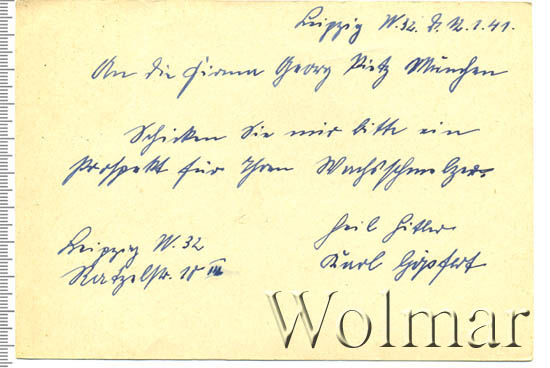 Leipzig W. 32. d. 12.1.41.
An die Firma Georg Pietz München
Schicken Sie mir bitte ein
Prospekt für Ihren Wachsschmelzer.
Heil Hitler
Karl Göpfert
Leipzig W. 32
Ratzelstr. 10 III
Wolmar